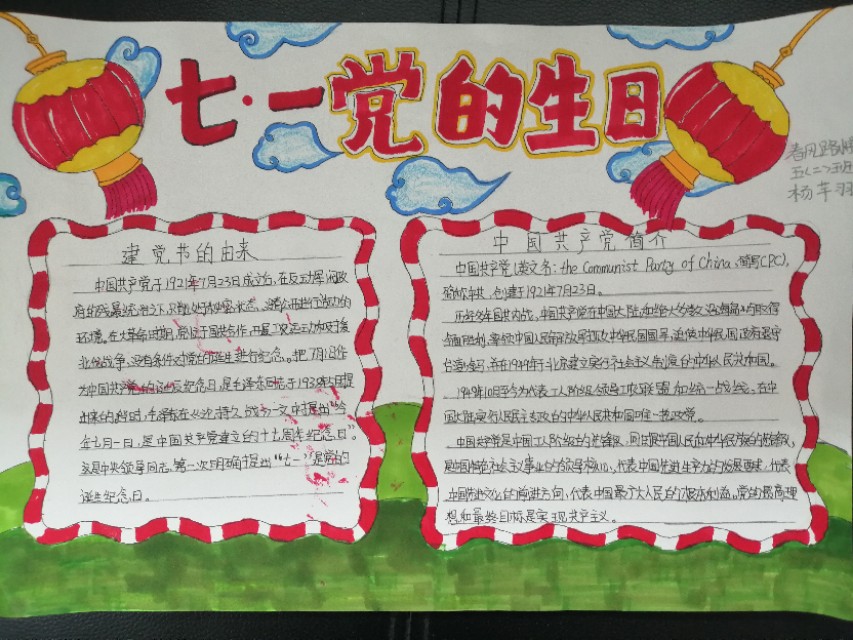 七·一党的生日
春风路
五〈二〉班
杨芊羽
建党节的由来
中国共产党于1921年7月23日成立后,在反动军阀政
府的残暴统治之下,只能处于秘密状态,没有公开进行活动的
环境。在大革命时期,党忙于国共合作、开展工农运动和支援
北伐战争,没有条件对党的诞生进行纪念。把7月1日作
为中国共产党的诞辰纪念日,是毛泽东同志于1938年5月提
出来的。当时,毛泽东在《论持久战》一文中提出"今
年七月一日,是中国共产党建立的十七周年纪念日"。
这是中央领导同志第一次明确提出"七一"是党的
诞生纪念日。
中国共产党简介
中国共产党(英文名:the Communist Party of China,简写CPC),
简称中共,创建于1921年7月23日。
历经多年国共内战,中国共产党在中国大陆
台澎金马,并在1949年于北京建立实行社会主义制度的中华人民共和国。
1949年10月至今为代表工人阶级领导工农联盟和统一战线,在中
国大陆实行人民民主专政的中华人民共和国唯一执政党。
中国共产党是中国工人阶级的先锋队,同时是中国人民和中华民族的先锋队,
是中国特色社会主义事业的领导核心,代表中国先进生产力的发展要求,代表
中国先进文化的前进方向,代表中国最广大人民的根本利益。党的最高理
想和最终目标是实现共产主义。